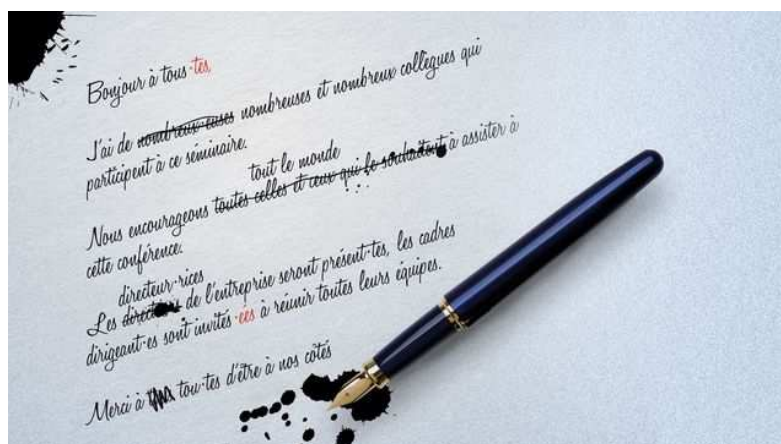 Bonjour à tous·tes,
J'ai de nombreux·euses nombreuses et nombreux collègues qui
participent à ce séminaire.
tout le monde
Nous encourageons toutes celles et ceux qui le souhaitent à assister à
cette conférence.
directeur·rices
Les de l'entreprise seront présent·tes, les cadres
dirigeant·es sont invités·ées à réunir toutes leurs équipes.
Merci à tou·tes d'être à nos côtés